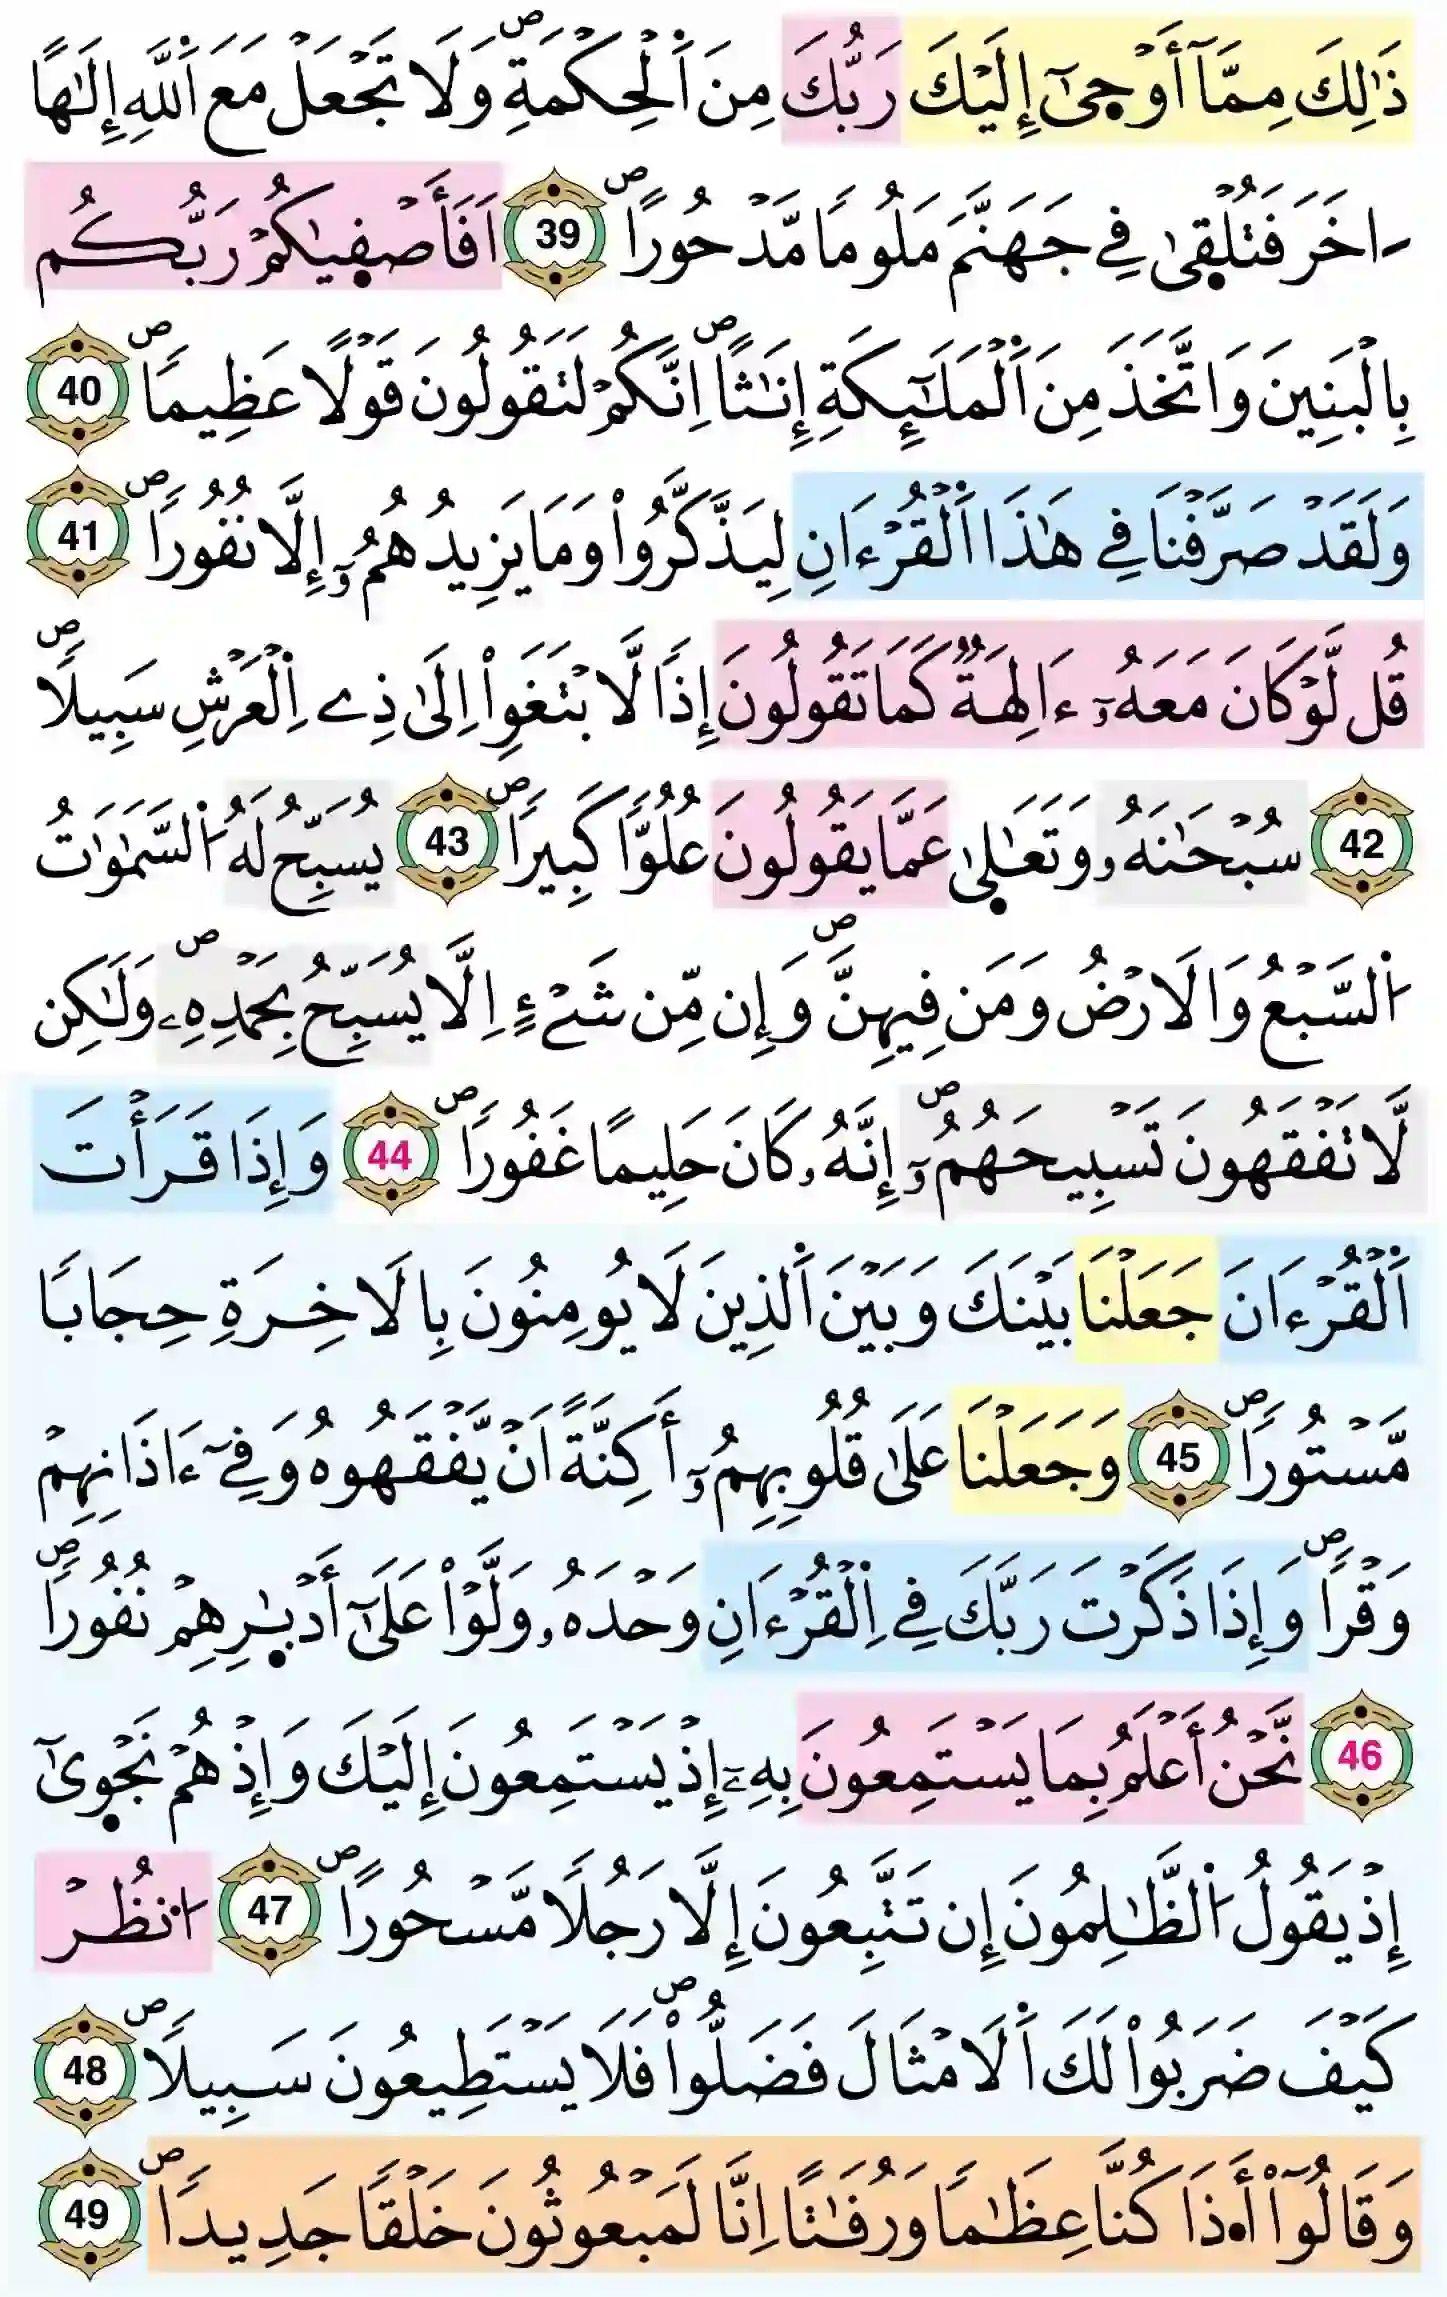 ذَٰلِكَ مِمَّآ أَوْحۭيٰٓ إِلَيْكَ رَبُّكَ مِنَ اَ۬لْحِكْمَةِۖ وَلَا تَجْعَلْ مَعَ اَ۬للَّهِ إِلَٰهاً
اٰخَرَ فَتُلْقۭيٰ فِے جَهَنَّمَ مَلُوماٗ مَّدْحُوراًۖ 39 اَفَأَصْفۭيٰكُمْ رَبُّكُم
بِالْبَنِينَ وَاتَّخَذَ مِنَ اَ۬لْمَلَٰٓئِكَةِ إِنَٰثاًۖ اِنَّكُمْ لَتَقُولُونَ قَوْلاً عَظِيماٗۖ 40
وَلَقَدْ صَرَّفْنَا فِے هَٰذَا اَ۬لْقُرْءَانِ لِيَذَّكَّرُواْ وَمَا يَزِيدُهُمُۥٓ إِلَّا نُفُوراٗۖ 41
قُل لَّوْ كَانَ مَعَهُۥٓ ءَالِهَةٞ كَمَا تَقُولُونَ إِذاٗ لَّابْتَغَوِاْ اِلَىٰ ذِے اِ۬لْعَرْشِ سَبِيلاٗۖ
42 سُبْحَٰنَهُۥ وَتَعَٰلۭيٰ عَمَّا يَقُولُونَ عُلُوّاٗ كَبِيراٗۖ 43 يُسَبِّحُ لَهُ اُ۬لسَّمَٰوَٰتُ
اُ۬لسَّبْعُ وَالَارْضُ وَمَن فِيهِنَّۖ وَإِن مِّن شَےْءٍ اِلَّا يُسَبِّحُ بِحَمْدِهِۦۖ وَلَٰكِن
لَّا تَفْقَهُونَ تَسْبِيحَهُمُۥٓۖ إِنَّهُۥ كَانَ حَلِيماً غَفُوراٗۖ 44 وَإِذَا قَرَأْتَ
اَ۬لْقُرْءَانَ جَعَلْنَا بَيْنَكَ وَبَيْنَ اَ۬لذِينَ لَا يُومِنُونَ بِالَاخِرَةِ حِجَاباٗ
مَّسْتُوراٗۖ 45 وَجَعَلْنَا عَلَىٰ قُلُوبِهِمُۥٓ أَكِنَّةً اَنْ يَّفْقَهُوهُ وَفِےٓ ءَاذَانِهِمْ
وَقْراٗۖ وَإِذَا ذَكَرْتَ رَبَّكَ فِے اِ۬لْقُرْءَانِ وَحْدَهُۥ وَلَّوْاْ عَلَىٰٓ أَدْبٰ۪رِهِمْ نُفُوراٗۖ
46 نَّحْنُ أَعْلَمُ بِمَا يَسْتَمِعُونَ بِهِۦٓ إِذْ يَسْتَمِعُونَ إِلَيْكَ وَإِذْ هُمْ نَجْوۭيٰٓ
إِذْ يَقُولُ اُ۬لظَّٰلِمُونَ إِن تَتَّبِعُونَ إِلَّا رَجُلاٗ مَّسْحُوراًۖ 47 اُ۟نظُرْ
كَيْفَ ضَرَبُواْ لَكَ اَ۬لَامْثَالَ فَضَلُّواْۖ فَلَا يَسْتَطِيعُونَ سَبِيلاٗۖ 48
وَقَالُوٓاْ أَ۟ذَا كُنَّا عِظَٰماٗ وَرُفَٰتاً اِنَّا لَمَبْعُوثُونَ خَلْقاٗ جَدِيداٗۖ 49